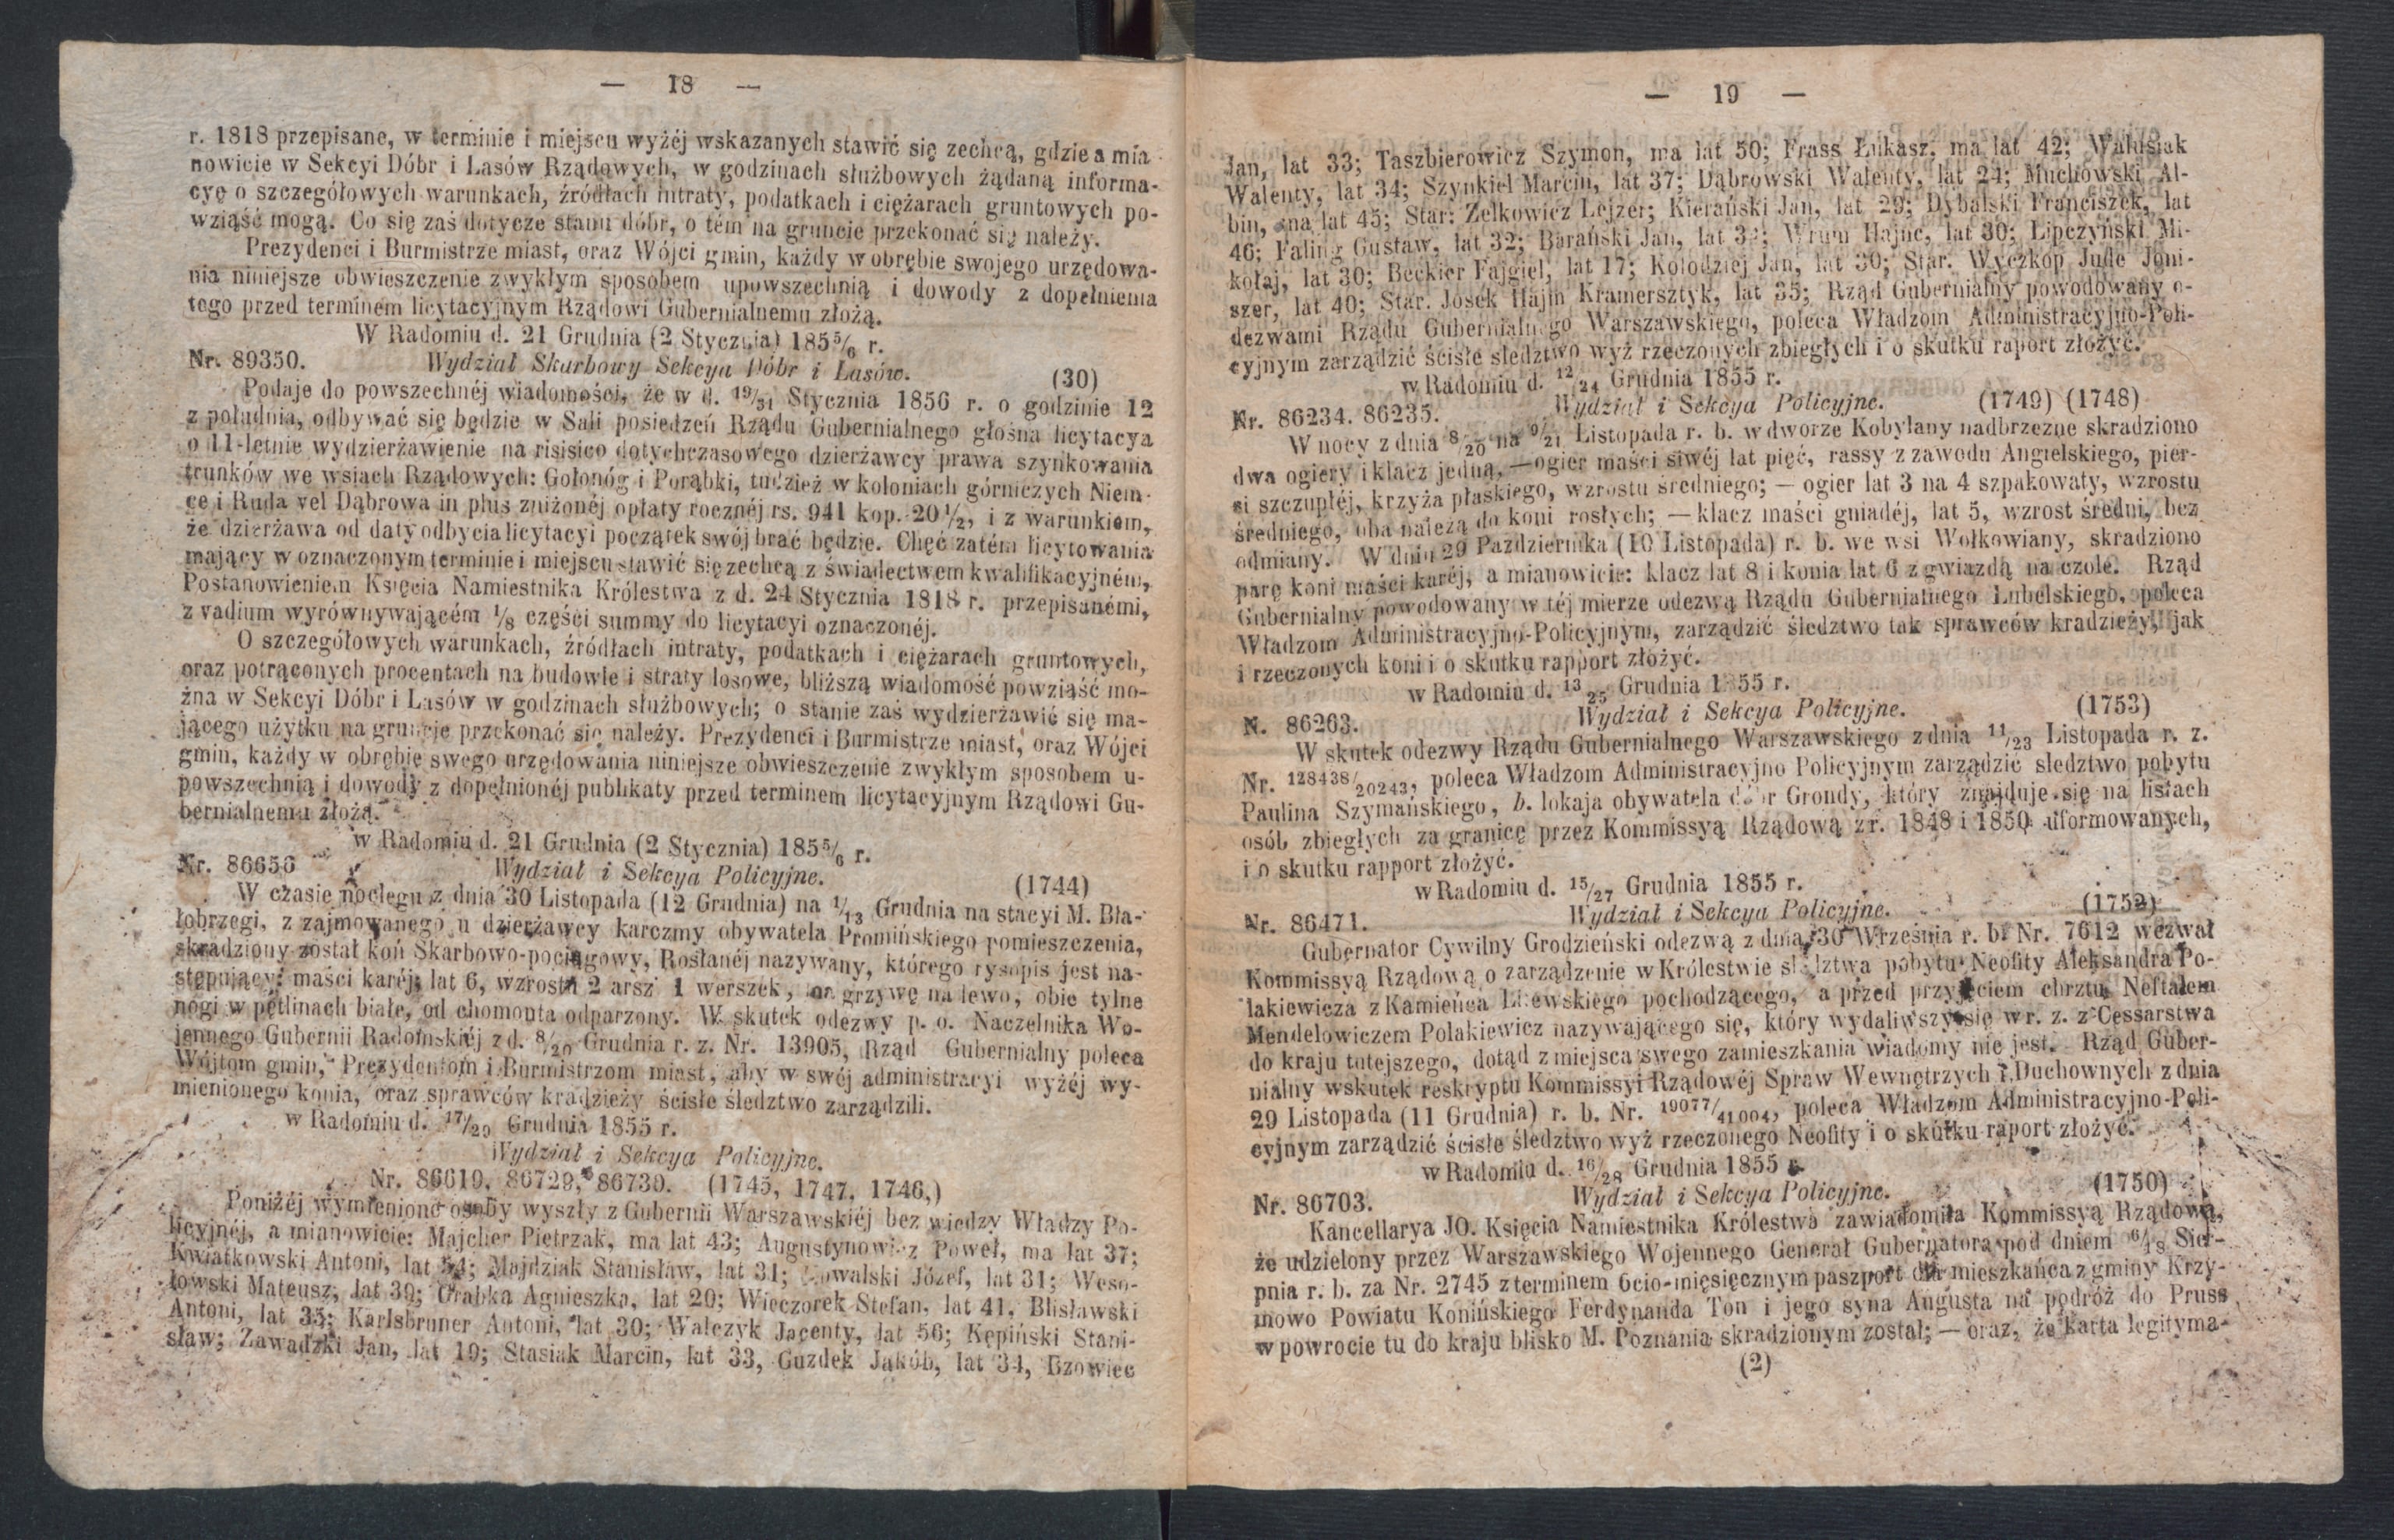 — 18 —
r. 1818 przepisane, w terminie i miejscu wyżéj wskazanych stawić się zechcą, gdzie a mia
nowicie w Sekcyi Dóbr i Lasów Rządowych, w godzinach służbowych żądaną informa-
cyę o szczegółowych warunkach, źródłach intraty, podatkach i ciężarach gruntowych po-
wziąść mogą. Co się zaś dotycze stanu dóbr, o tém na gruncie przekonać się należy.
Prezydenci i Burmistrze miast, oraz Wójci gmin, każdy w obrębie swojego urzędowa-
nia niniejsze obwieszczenie zwykłym sposobem upowszechnią i dowody z dopełnienia
tego przed terminem licytacyjnym Rządowi Gubernialnemu złożą.
W Radomiu d. 21 Grudnia (2 Stycznia) 185 5/6 r.
Nr. 89350. Wydział Skarbowy Sekcya Dóbr i Lasów. (30)
Podaje do powszechnéj wiadomości, że w d. 19/31 Stycznia 1856 r. o godzinie 12
z południa, odbywać się będzie w Sali posiedzeń Rządu Gubernialnego głośna licytacya
o 11-letnie wydzierżawienie na risisico dotychczasowego dzierżawcy prawa szynkowania
trunków we wsiach Rządowych: Gołonóg i Porąbki, tudzież w koloniach górniczych Niem-
ce i Ruda vel Dąbrowa in plus zniżonéj opłaty rocznéj rs. 941 kop. 20 1/2, i z warunkiem,
że dzierżawa od daty odbycia licytacyi początek swój brać będzie. Chęć zatém licytowania
mający w oznaczonym terminie i miejscu stawić się zechcą z świadectwem kwalifikacyjném,
Postanowieniem Księcia Namiestnika Królestwa z d. 24 Stycznia 1818 r. przepisanémi,
z vadium wyrównywającém 1/8 części summy do licytacyi oznaczonéj.
O szczegółowych warunkach, źródłach intraty, podatkach i ciężarach gruntowych,
oraz potrąconych procentach na budowle i straty losowe, bliższą wiadomość powziąść mo-
żna w Sekcyi Dóbr i Lasów w godzinach służbowych; o stanie zaś wydzierżawić się ma-
jącego użytku na gruncie przekonać się należy. Prezydenci i Burmistrze miast, oraz Wójci
gmin, każdy w obrębie swego urzędowania niniejsze obwieszczenie zwykłym sposobem u-
powszechnią i dowody z dopełnionéj publikaty przed terminem licytacyjnym Rządowi Gu-
bernialnemu złożą.
w Radomiu d. 21 Grudnia (2 Stycznia) 185 5/6 r.
Nr. 86656 Wydział i Sekcya Policyjne. (1744)
W czasie noclegu z dnia 30 Listopada (12 Grudnia) na 1/13 Grudnia na stacyi M. Bia-
łobrzegi, z zajmowanego u dzierżawcy karczmy obywatela Promińskiego pomieszczenia,
skradziony został koń Skarbowo-pociągowy, Rosłanéj nazywany, którego rysopis jest na-
stępujący: maści karéj, lat 6, wzrostu 2 arsz 1 werszek, grzywę na lewo, obie tylne
nogi w pętlinach białe, od chomonta odparzony. W skutek odezwy p. o. Naczelnika Wo-
jennego Gubernii Radomskiéj z d. 8/20 Grudnia r. z. Nr. 13905, Rząd Gubernialny poleca
Wójtom gmin, Prezydentom i Burmistrzom miast, aby w swéj administracyi wyżéj wy-
mienionego konia, oraz sprawców kradzieży ścisłe śledztwo zarządzili.
w Radomiu d. 17/29 Grudnia 1855 r.
Wydział i Sekcya Policyjne.
Nr. 86619, 86729, 86730. (1745, 1747, 1746,)
Poniżéj wymienione osoby wyszły z Gubernii Warszawskiéj bez wiedzy Władzy Po-
licyjnéj, a mianowicie: Majcher Pietrzak, ma lat 43; Augustynowicz Poweł, ma lat 37;
Kwiatkowski Antoni, lat 54; Majdziak Stanisław, lat 31; Kowalski Józef, lat 31; Weso-
łowski Mateusz, lat 30; Grabka Agnieszka, lat 20; Wieczorek Stefan, lat 41, Blisławski
Antoni, lat 35; Karlsbruner Antoni, lat 30; Walczyk Jacenty, lat 56; Kępiński Stani-
sław; Zawadzki Jan, lat 19; Stasiak Marcin, lat 33, Guzdek Jakób, lat 34, Bzowiec
— 19 —
Jan, lat 33; Taszbierowicz Szymon, ma lat 50; Frass Łukasz, ma lat 42; Walusiak
Walenty, lat 34; Szynkiel Marcin, lat 37; Dąbrowski Walenty, lat 24; Muchowski Al-
bin, ma lat 45; Star: Zelkowicz Lejzer; Kierański Jan, lat 29; Dybalski Franciszek, lat
46; Faling Gustaw, lat 32; Barański Jan, lat Wrum Hajne, lat 30; Lipczyński Mi-
kołaj, lat 30; Beckier Fajgiel, lat 17; Kołodziej Jan, lat 30; Star. Wyczkop Jude Joni-
szer, lat 40; Star. Josek Hajm Kramersztyk, lat 35; Rząd Gubernialny powodowany o-
dezwami Rządu Gubernialnego Warszawskiego, poleca Władzom Administracyjno-Poli-
cyjnym zarządzić ścisłe śledztwo wyż rzeczonych zbiegłych i o skutku raport złożyć.
w Radomiu d. 12/24 Grudnia 1855 r.
Nr. 86234. 86235. Wydział i Sekcya Policyjne. (1749) (1748)
W nocy z dnia 8/20 na 9/21 Listopada r. b. w dworze Kobylany nadbrzezne skradziono
dwa ogiery i klacz jedną,—ogier maści siwéj lat pięć, rassy z zawodu Angielskiego, pier-
si szczupłéj, krzyża płaskiego, wzrostu średniego; — ogier lat 3 na 4 szpakowaty, wzrostu
średniego, oba należą do koni rosłych; — klacz maści gniadéj, lat 5, wzrost średni, bez
odmiany. W dniu 29 Października (10 Listopada) r. b. we wsi Wołkowiany, skradziono
parę koni maści karéj, a mianowicie: klacz lat 8 i konia lat 6 z gwiazdą na czole. Rząd
Gubernialny powodowany w téj mierze odezwą Rządu Gubernialnego Lubelskiego, poleca
Władzom Administracyjno-Policyjnym, zarządzić śledztwo tak sprawców kradzieży, jak
i rzeczonych koni i o skutku rapport złożyć.
w Radomiu d. 13/25 Grudnia 1855 r.
N. 86263. Wydział i Sekcya Policyjne. (1753)
W skutek odezwy Rządu Gubernialnego Warszawskiego z dnia 11/23 Listopada r. z.
Nr. 128438/20243, poleca Władzom Administracyjno Policyjnym zarządzić śledztwo pobytu
Paulina Szymańskiego, b. lokaja obywatela dóbr Grondy, który znajduje się na listach
osób zbiegłych za granicę przez Kommissyą Rządową z r. 1848 i 1850 uformowanych,
i o skutku rapport złożyć.
w Radomiu d. 15/27 Grudnia 1855 r.
Nr. 86471. Wydział i Sekcya Policyjne. (1752)
Gubernator Cywilny Grodzieński odezwą z dnia 30 Września r. b. Nr. 7612 wezwał
Kommissyą Rządową o zarządzenie w Królestwie śledztwa pobytu Neofity Aleksandra Po-
lakiewicza z Kamieńca pochodzącego, a przed przyjęciem chrztu Neftalem
Mendelowiczem Polakiewicz nazywającego się, który wydaliwszy się w r. z. z Cessarstwa
do kraju tutejszego, dotąd z miejsca swego zamieszkania wiadomy nie jest. Rząd Guber-
nialny wskutek reskryptu Kommissyi Rządowéj Spraw Wewnętrzych i Duchownych z dnia
29 Listopada (11 Grudnia) r. b. Nr. 19077/41004, poleca Władzom Administracyjno-Poli-
cyjnym zarządzić ścisłe śledztwo wyż rzeczonego Neofity i o skutku raport złożyć.
w Radomiu d. 16/28 Grudnia 1855 r.
Nr. 86703. Wydział i Sekcya Policyjne. (1750)
Kancellarya JO. Księcia Namiestnika Królestwa zawiadomiła Kommissyą Rządową,
że udzielony przez Warszawskiego Wojennego Generał Gubernatora pod dniem 6/18 Sier-
pnia r. b. za Nr. 2745 z terminem 6cio-mięsięcznym paszport dla mieszkańca z gminy Krzy-
mowo Powiatu Konińskiego Ferdynanda Ton i jego syna Augusta na podróż do Pruss
w powrocie tu do kraju blisko M. Poznania skradzionym został; — oraz, że karta legityma-
(2)